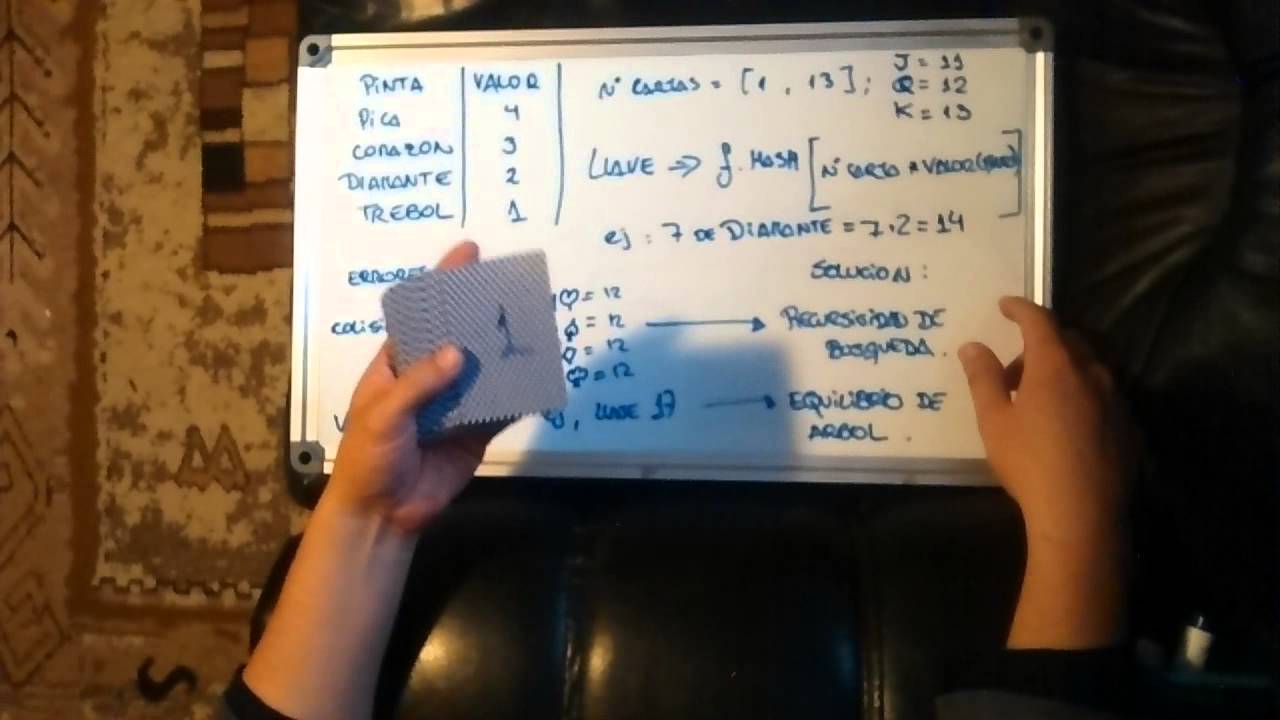 PINTA VALOR
PICA 4
CORAZON 3
DIAMANTE 2
TREBOL 1
Nº CARTAS = [1 , 13] ;
J = 11
Q = 12
K = 13
LLAVE ⇒ f. HASH [Nº CARTA * VALOR
ej : 7 DE DIAMANTE = 7.2 = 14
ERRORES
SOLUCION :
♡ = 12
♤ = 12
◇ = 12
♧ = 12
→ RECURSIVIDAD DE
BUSQUEDA .
LLAVE 17 → EQUILIBRIO DE
ARBOL .
1